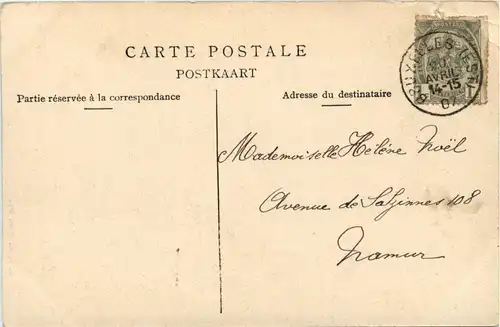 CARTE POSTALE
POSTKAART
Partie réservée à la correspondance
Adresse du destinataire
AVRIL
14-15
07
Mademoiselle Hélène Noël
Avenue de Salzinnes 108
Namur